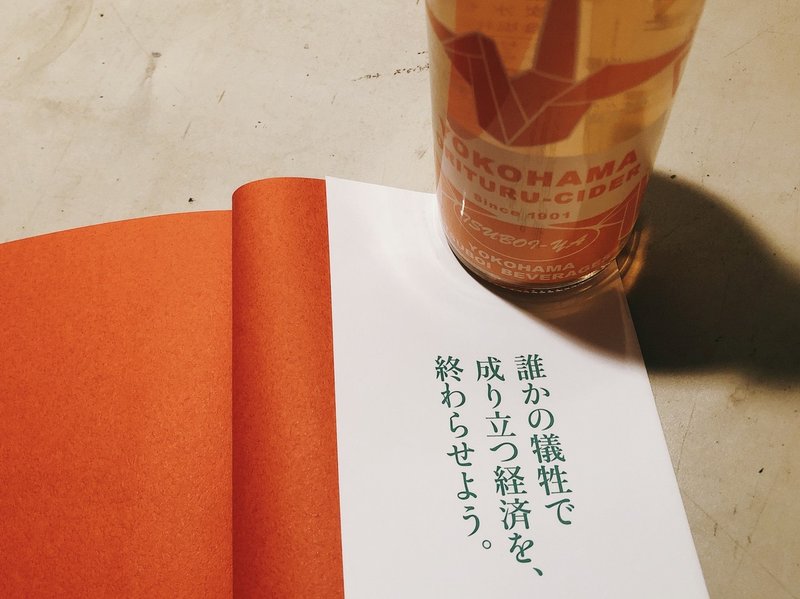 YOKOHAMA
ORITURU-CIDER
Since 1901
TSUBOI-YA
YOKOHAMA
TSUBOI BEVERAGES
誰かの犠牲で
成り立つ経済を、
終わらせよう。